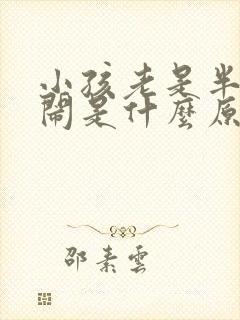 小孩老是半
鬧是什麼原
邵素雲